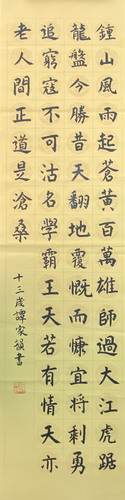 鍾山風雨起蒼黃百萬雄師過大江虎踞
龍盤今勝昔天翻地覆慨而慷宜將剩勇
追窮寇不可沽名學霸王天若有情天亦
老人間正道是滄桑
十三歲譚家領書